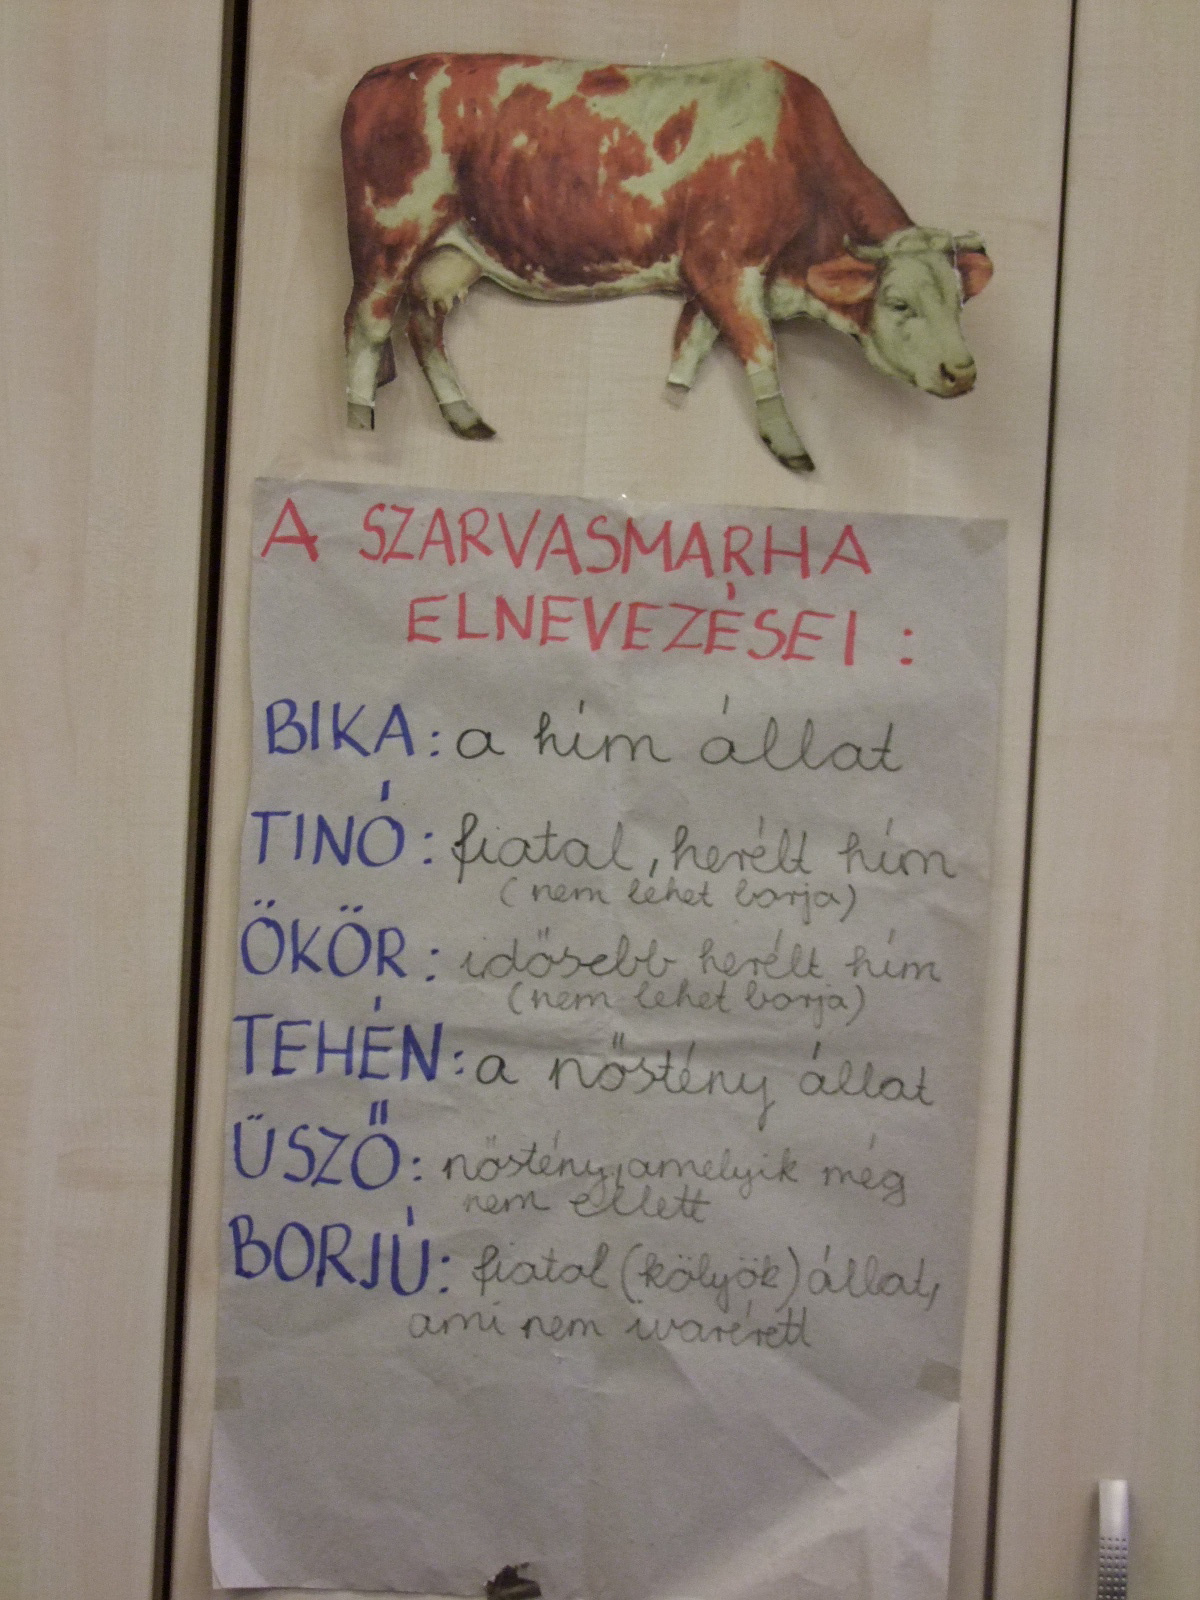 A SZARVASMARHA
ELNEVEZÉSEI :
BIKA: a hím állat
TINÓ: fiatal, herélt hím
(nem lehet borja)
ÖKÖR: idősebb herélt hím
(nem lehet borja)
TEHÉN: a nőstény állat
ÜSZŐ: nőstény, amelyik még
nem ellett
BORJÚ: fiatal (kölyök) állat,
ami nem ivarérett